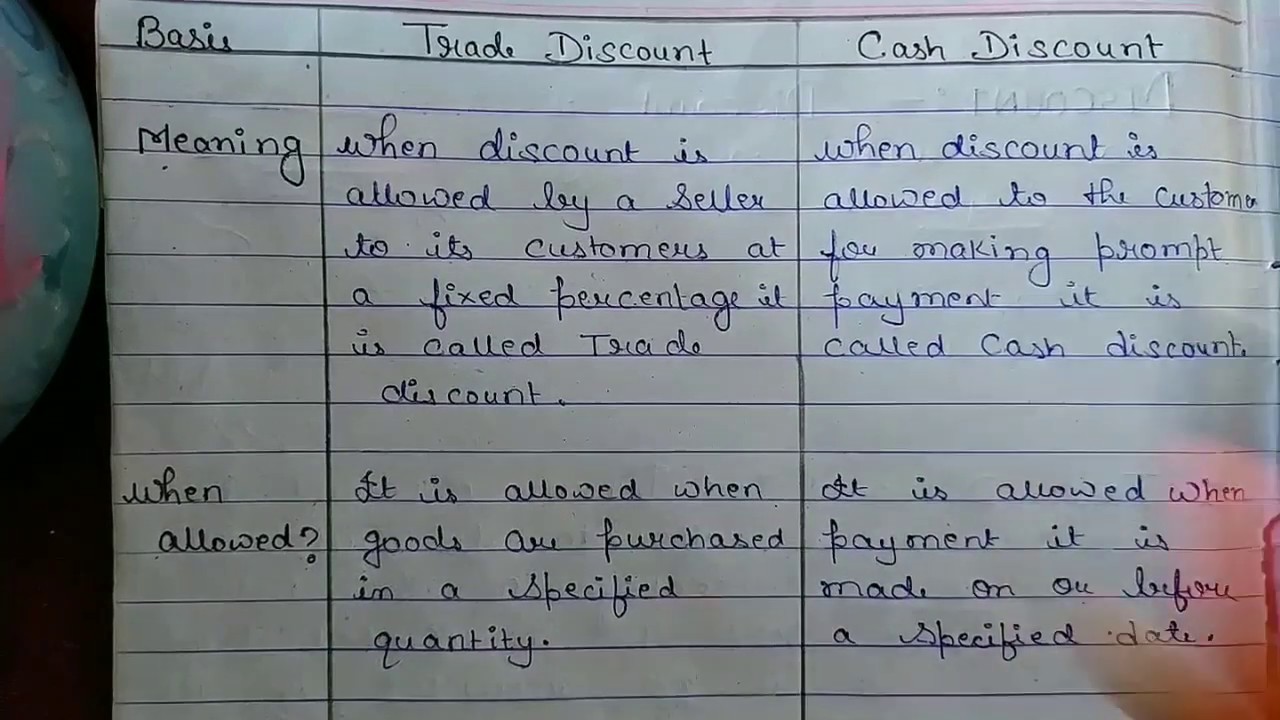 Basis Trade Discount Cash Discount
Meaning when discount is when discount is
allowed by a seller allowed to the customer
to its customers at for making prompt
a fixed percentage it payment it is
is called Trade called Cash discount.
discount.
when It is allowed when It is allowed when
allowed? goods are purchased payment it is
in a specified made on or before
quantity. a specified date.